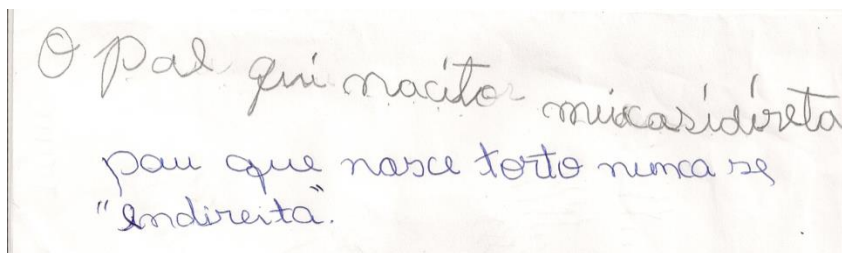 O pal qui nacito nuicasidireta
pau que nasce torto nunca se
"endireita".